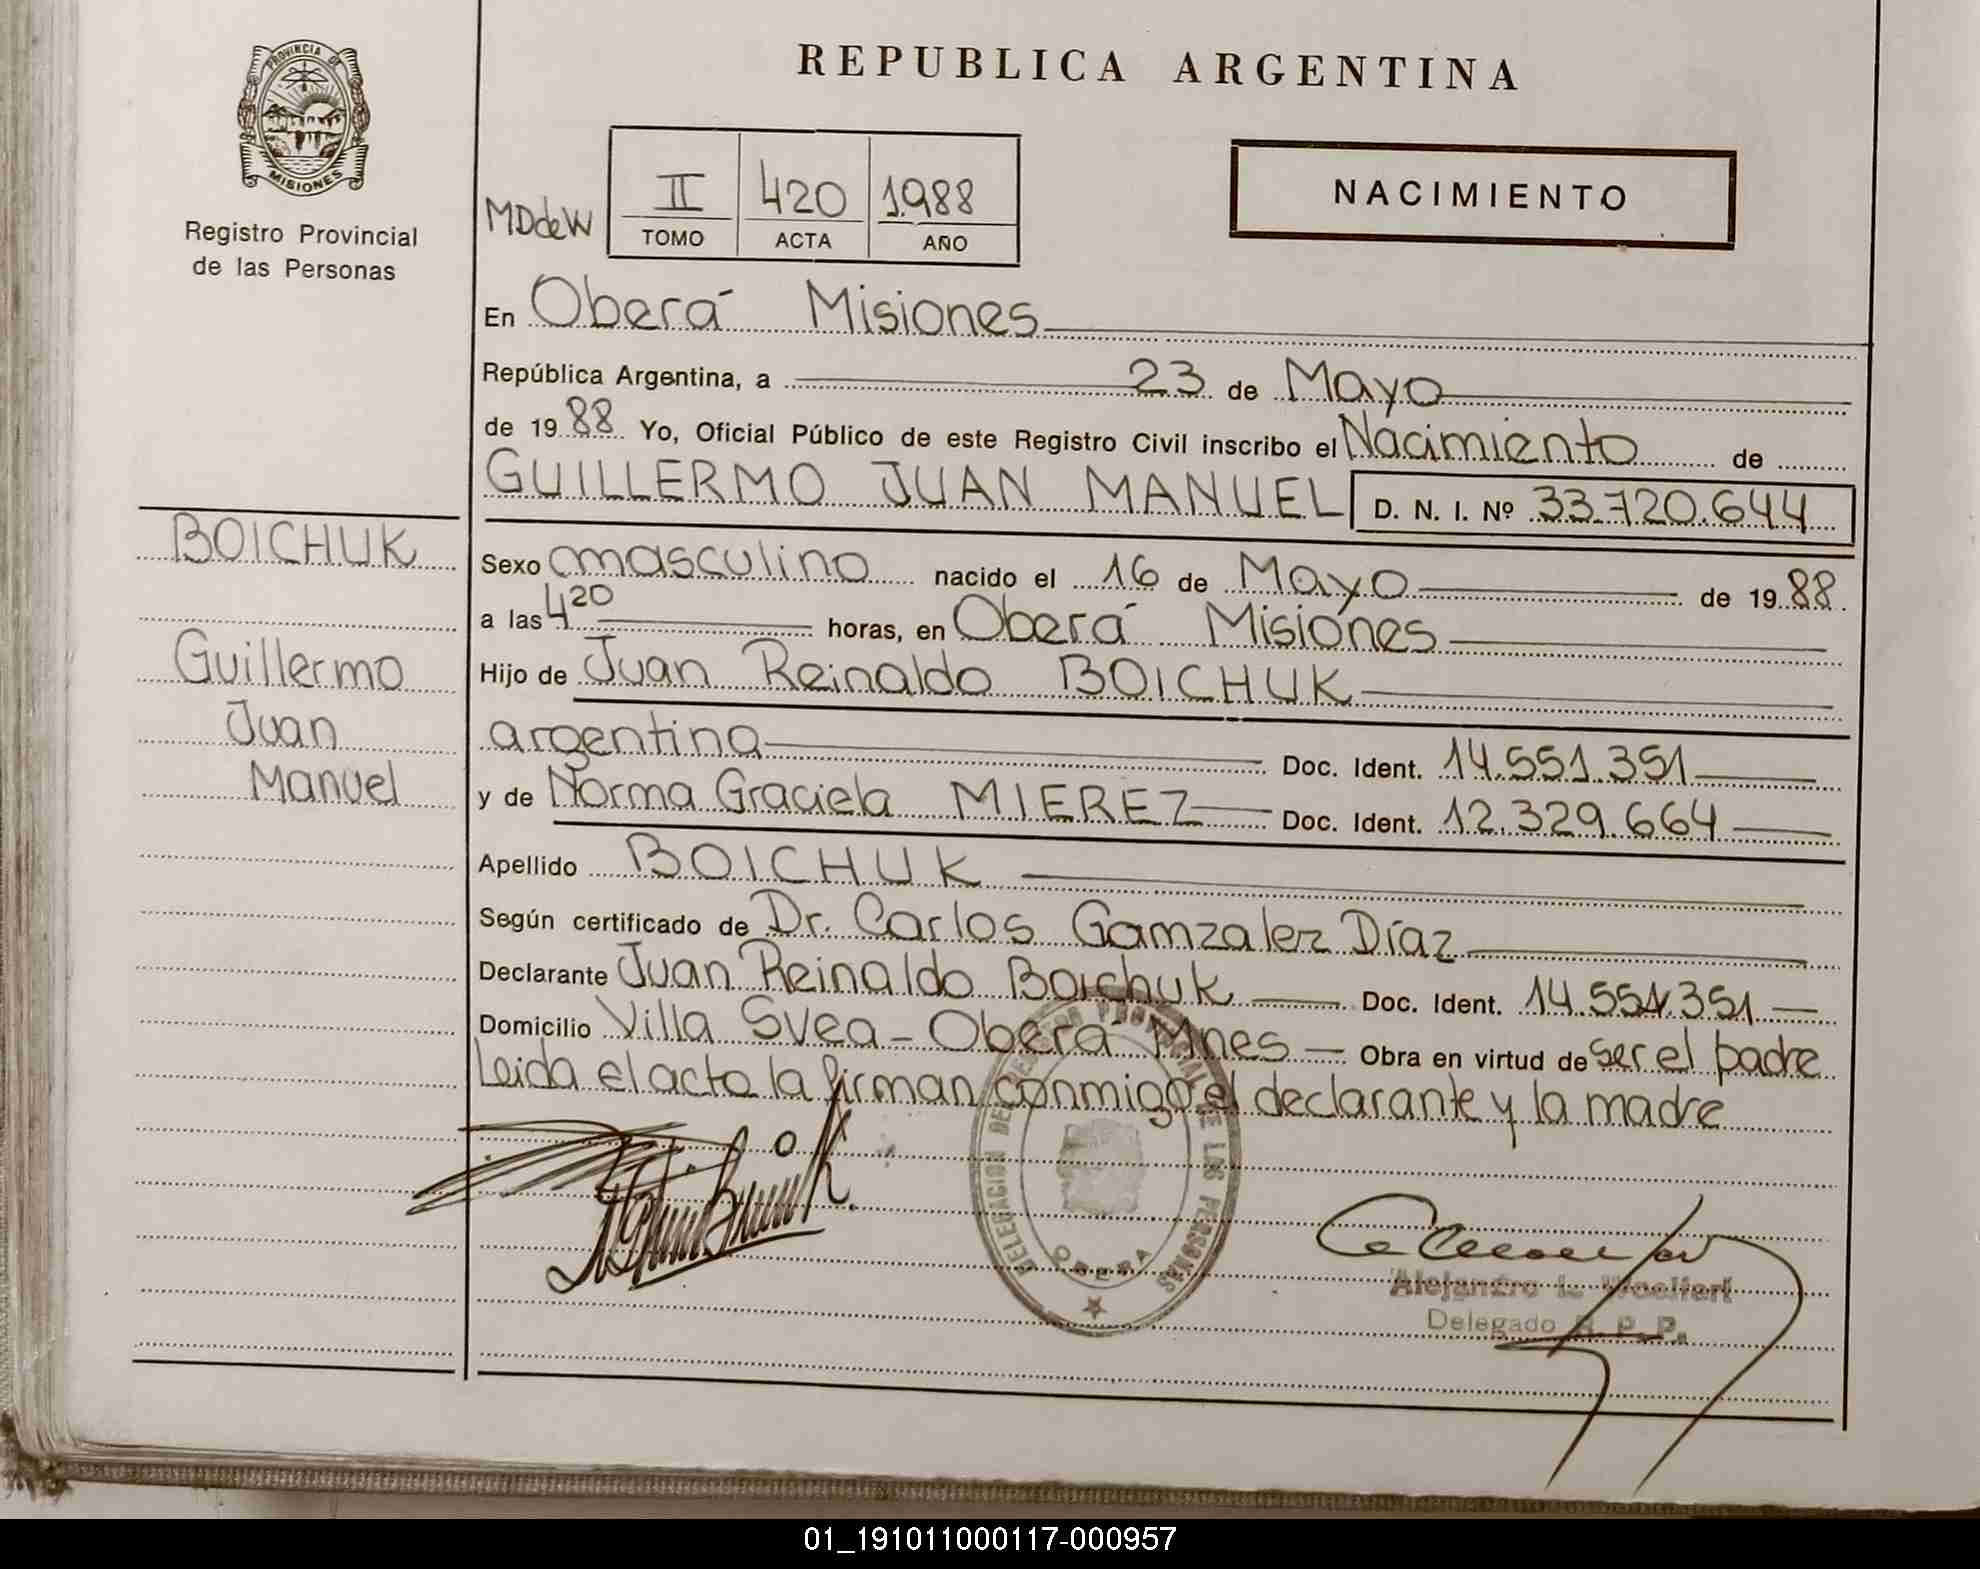 PROVINCIA DE
MISIONES
Registro Provincial
de las Personas
REPUBLICA ARGENTINA
MDdeW
II 420 1.988
TOMO ACTA AÑO
NACIMIENTO
En Oberá Misiones
República Argentina, a 23 de Mayo
de 19 88 Yo, Oficial Público de este Registro Civil inscribo el Nacimiento de
GUILLERMO JUAN MANUEL D. N. I. Nº 33.720.644
BOICHUK
Guillermo
Juan
Manuel
Sexo masculino nacido el 16 de Mayo de 19 88
a las 4 20 horas, en Oberá Misiones
Hijo de Juan Reinaldo BOICHUK
argentina Doc. Ident. 14.551.351
y de Norma Graciela MIEREZ Doc. Ident. 12.329.664
Apellido BOICHUK
Según certificado de Dr. Carlos Gamzalez Díaz
Declarante Juan Reinaldo Boichuk Doc. Ident. 14.551.351
Domicilio Villa Svea - Oberá Mnes Obra en virtud de ser el padre
Leida el acto la firman conmigo el declarante y la madre
DELEGACION DEL REGISTRO PROVINCIAL DE LAS PERSONAS
OBERA
Alejandro L. Woelfert
Delegado R. P. P.
01_191011000117-000957